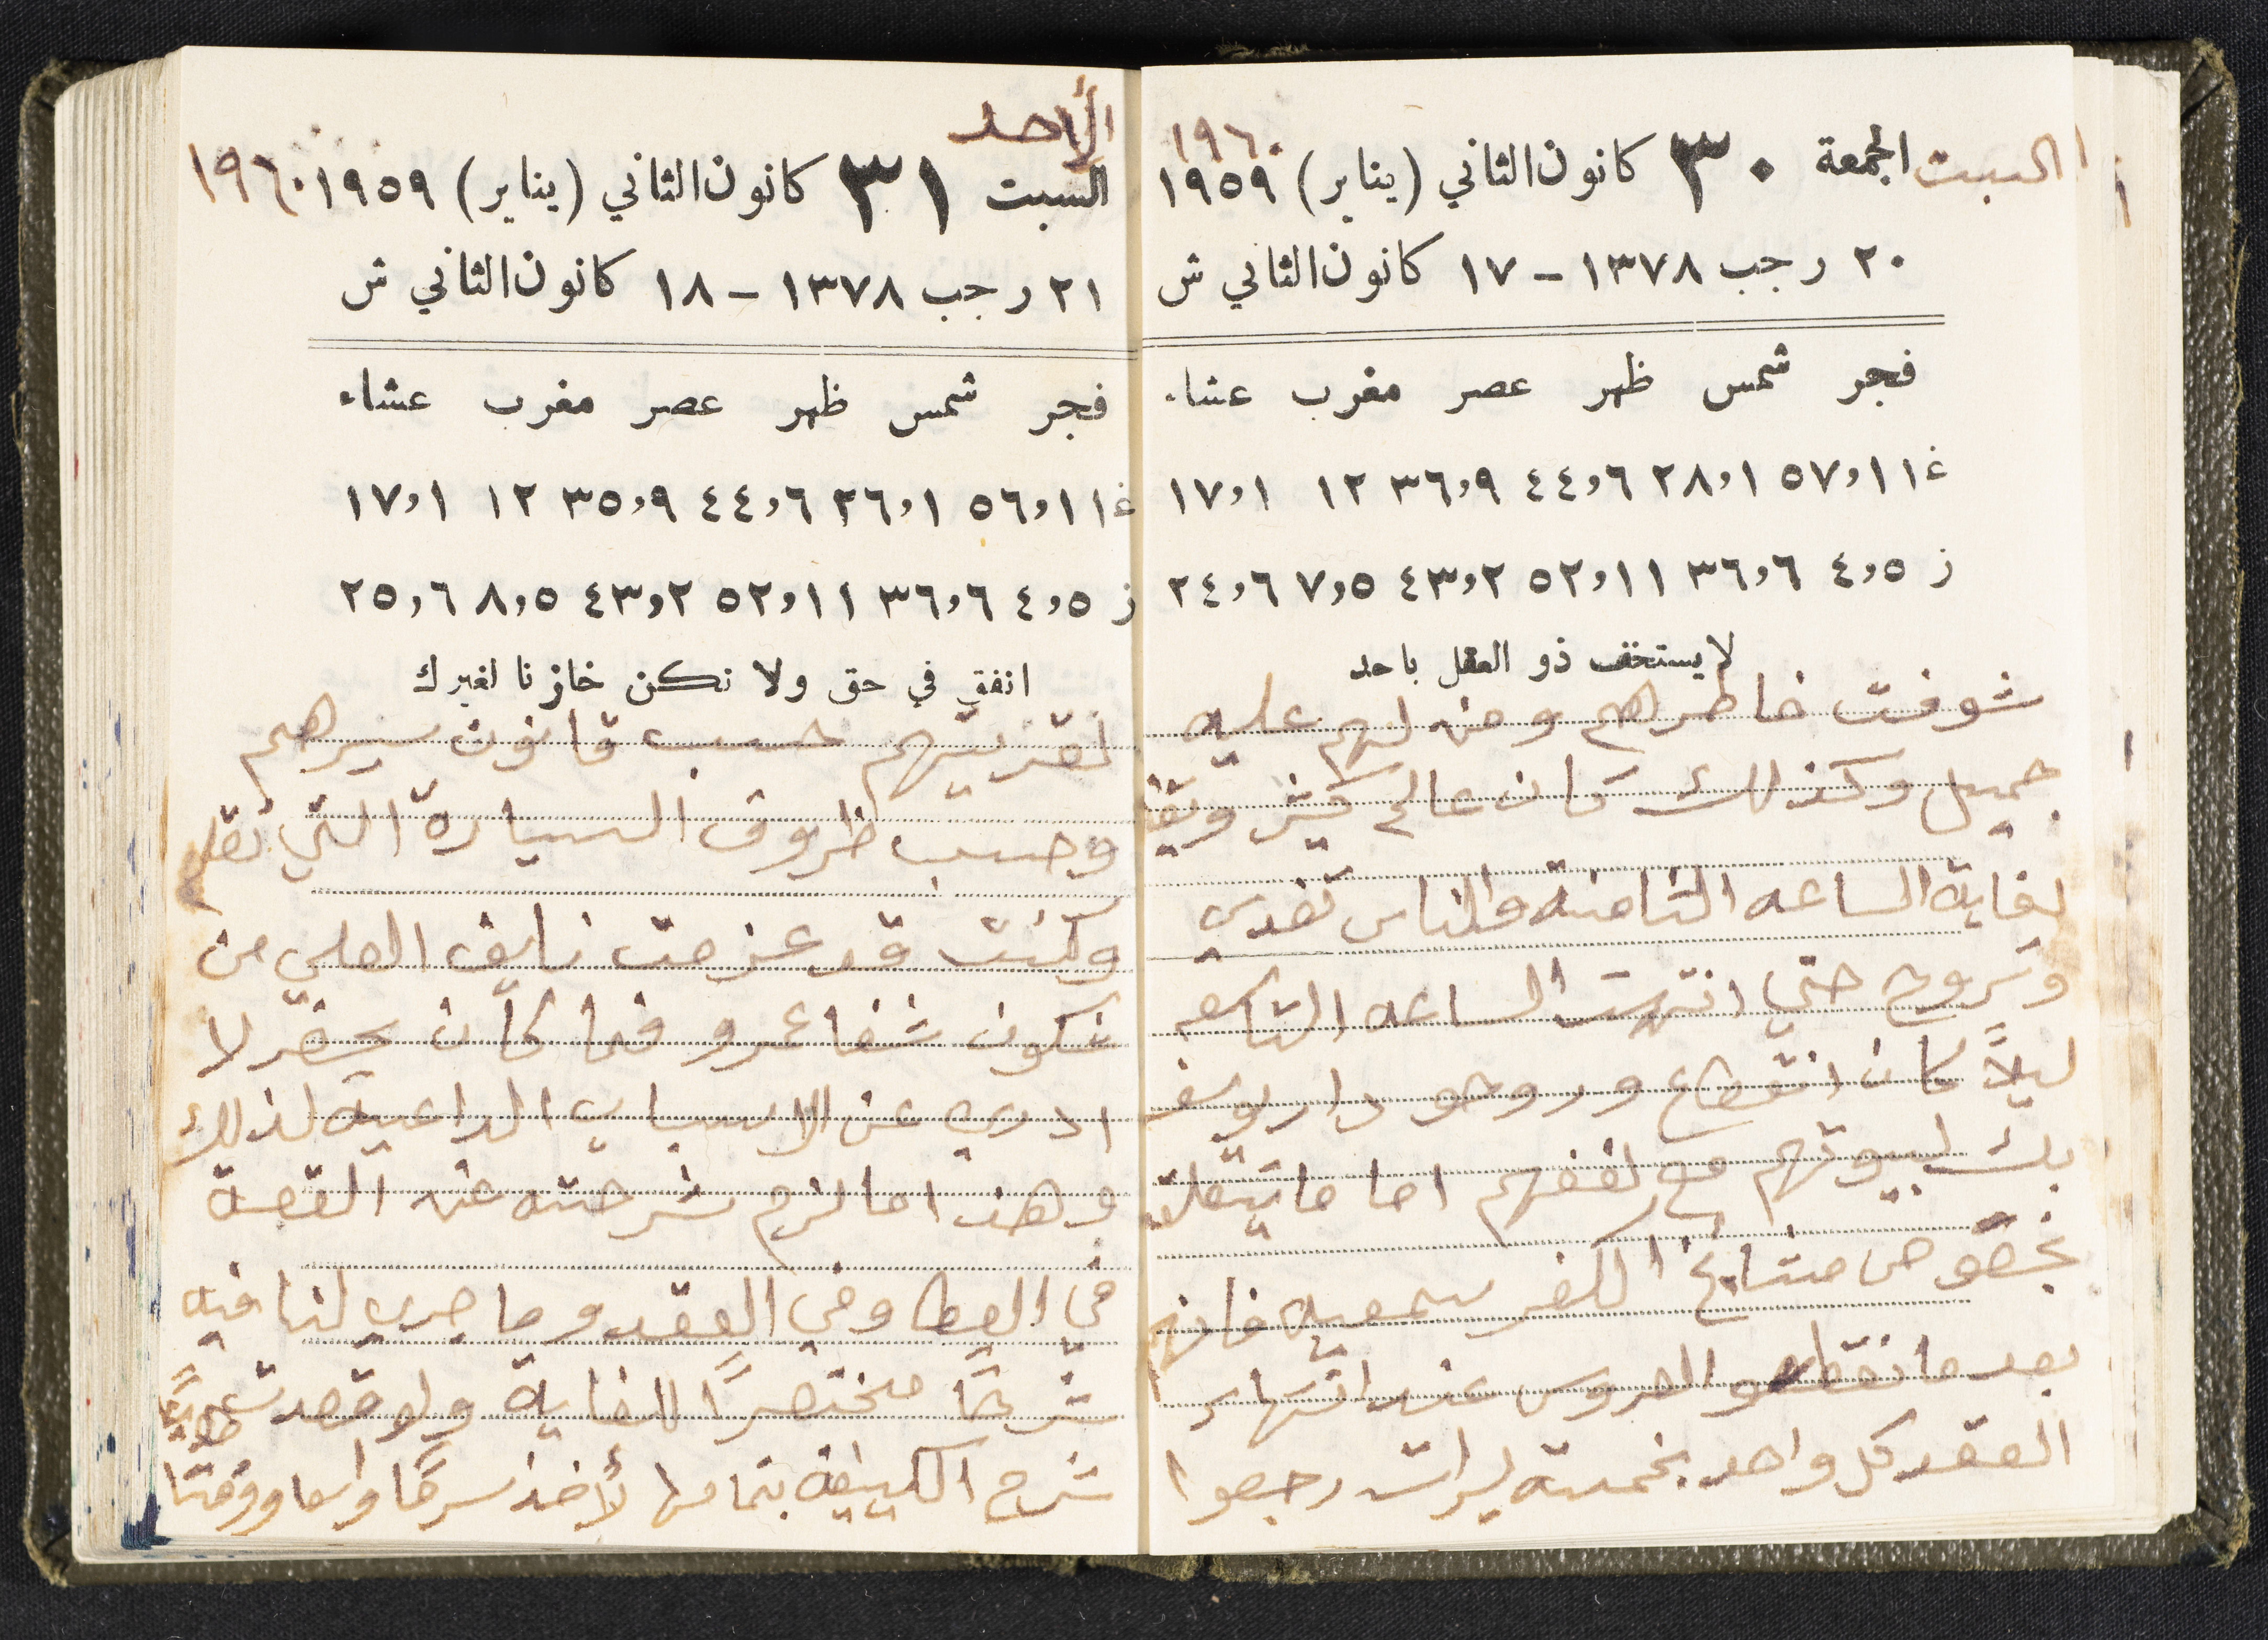 السبت
١٩٦٠
الجمعة ٣٠ كانون الثاني (يناير) ١٩٥٩
٢٠ رجب ١٣٧٨ - ١٧ كانون الثاني ش
فجر شمس ظهر عصر مغرب عشاء
غ ٥٧,١١ ٢٨,١ ٤٤,٦ ٣٦,٩ ١٢ ١٧,١
ز ٤,٥ ٣٦,٦ ٥٢,١١ ٤٣,٢ ٧,٥ ٢٤,٦
لا يستخف ذو العقل باحد
شوفت خاطرهم ومنه لهم عليه
جميل وكذلك كان عالم كثير وبقا
لغاية الساعه الثامنة والناس تغدي
وتروح حتي انتهت الساعه التاسعه
ليلاً كان انقطاع وروحو دار يوسف
بك لبيوتهم مع لففهم اما ما يتعلق
بخصوص مشايخ الكفر سميه فانهم
بعد ما نقطو العروس عند اشهار
العقد كل واحد بخمسة ليرات رجعوا
الأحد
السبت ٣١ كانون الثاني (يناير) ١٩٥٩ ١٩٦٠
٢١ رجب ١٣٧٨ - ١٨ كانون الثاني ش
فجر شمس ظهر عصر مغرب عشاء
غ ٥٦,١١ ٢٦,١ ٤٤,٦ ٣٥,٩ ١٢ ١٧,١
ز ٤,٥ ٣٦,٦ ٥٢,١١ ٤٣,٢ ٨,٥ ٢٥,٦
انفق في حق ولا تكن خازنا لغيرك
لقريتهم حسب قانون سيرهم
وحسب ظروف السيارة التي تقلهم
وكنت قد عزمت نايف العلي من
شفاعمرو فما كان يحضر لا
ادري عن الاسباب الداعية لذلك
وهذا ما لزم شرحته عن القصة
في العطا وفي العقد وما جري لنا فيه
شرحًا مختصرًا للغاية ولو قصدت
شرح الكيفية بتمامها لأخذ شرحًا واسعا ووقتا